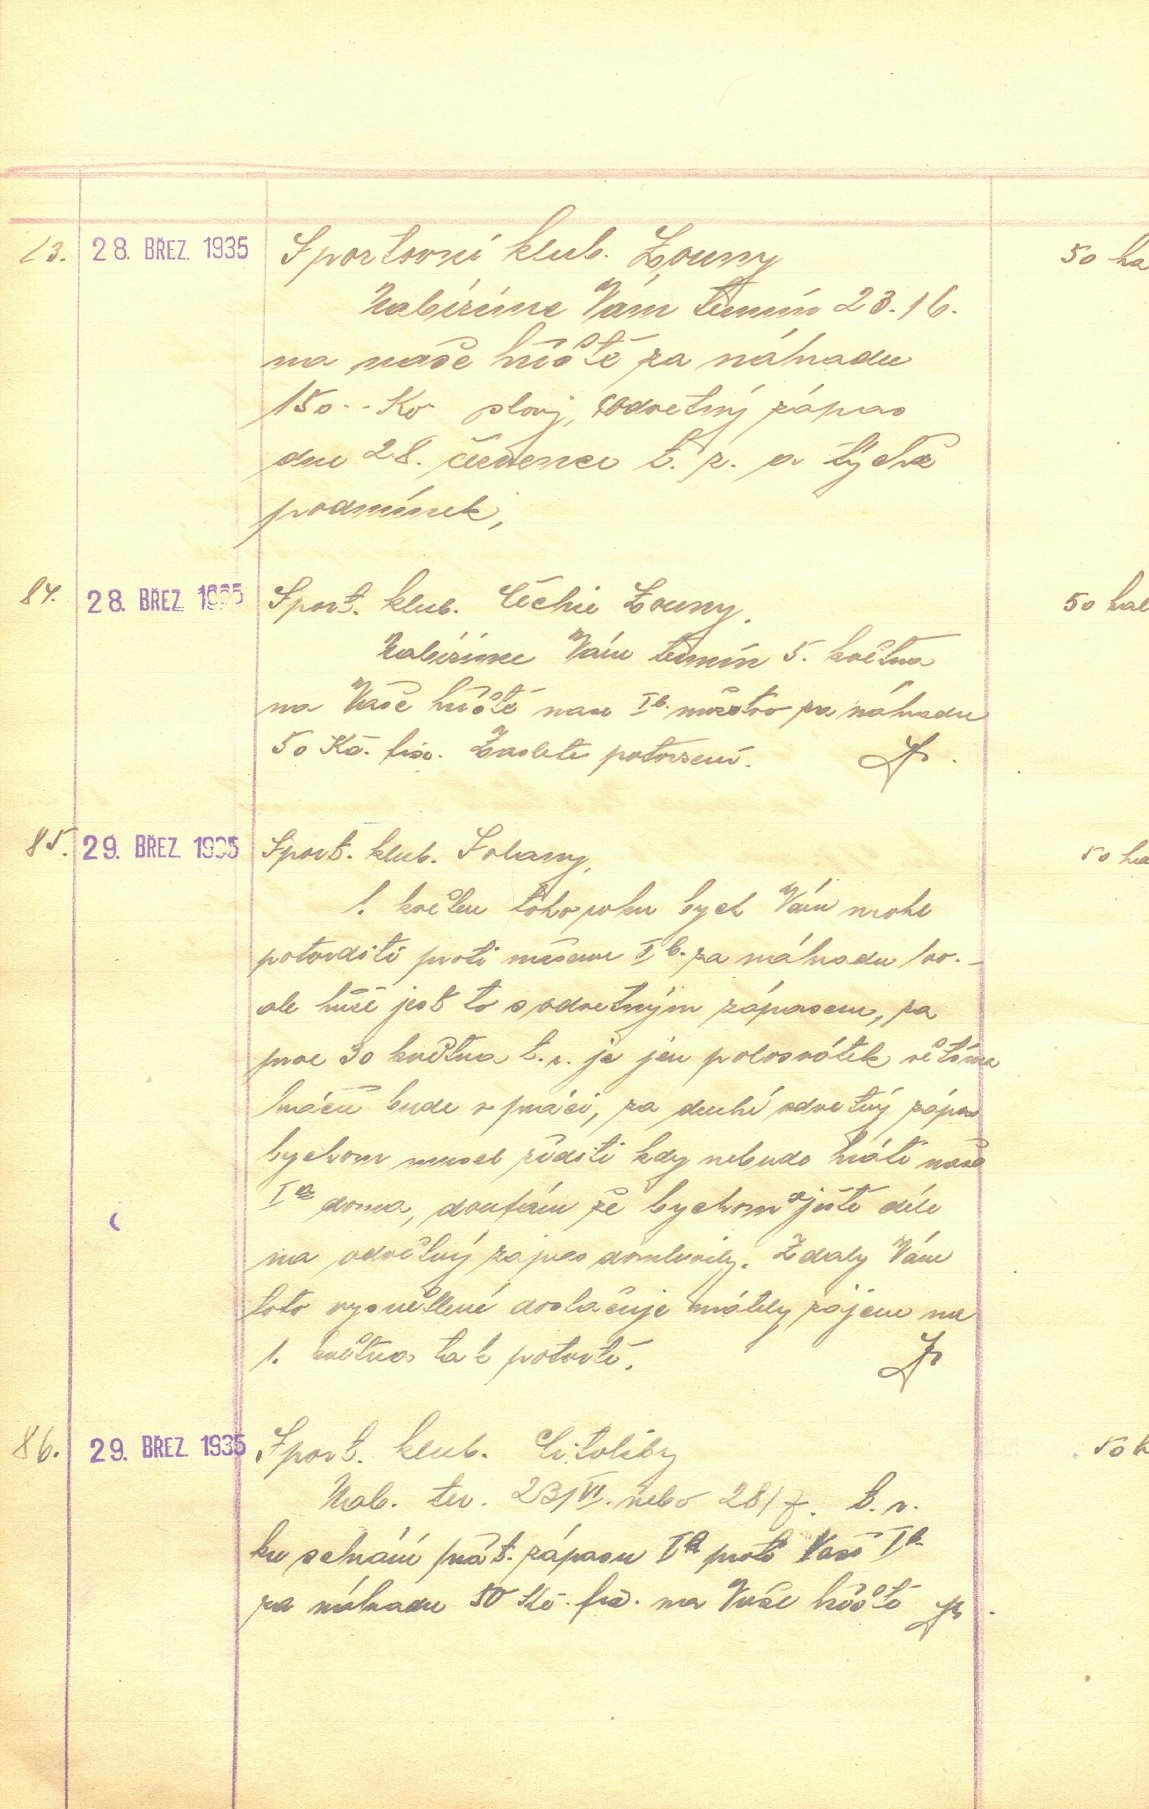 83. 28. BŘEZ. 1935 Sportovní klub. Louny 50 ha
Nabízíme Vám termín 23./6.
na naše hřiště za náhradu
150.- Kč a odvetný zápas
dne 28. července t. r. a týchž
podmínek,
84. 28. BŘEZ. 1935 Sport. klub. Čechie Louny. 50 hal
Nabízíme Vám termín 5. května
na Vaše hřiště naše Ib. mužstvo za náhradu
50 Kč. fix. Zašlete potvrzení.
85. 29. BŘEZ. 1935 Sport. klub. Solany, 50 ha
1. květen toho roku bych Vám mohl
potvrditi proti našemu I b. za náhradu 100.-
ale hůře jest to s odvetným zápasem, za
prve 30 května t. r. je jen polosvátek většina
hráčů bude v práci, za druhé odvetný zápas
bychom musel zříditi kdy nebude hráti naše
Ia doma, doufám že bychom ještě déle
na odvetný zápas domluvily. Zdaly Vám
toto vysvětlení dostačuje mátely zájem na
1. května tak potvrtě.
86. 29. BŘEZ. 1935 Sport. klub. Cítoliby 50 h
Nab. ter. 23/VI. nebo 28/7. t. r.
ku sehrání přát. zápasu Ia proti Vaší Ia
za náhradu 50 Kč fix. na Vaše hřiště